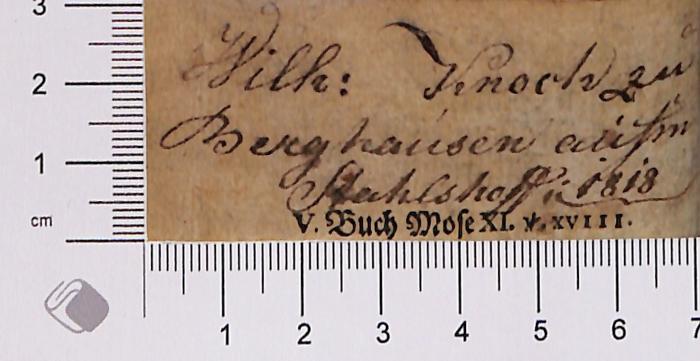 3
Wilh: Knoch zu
2
Berghausen aufm
1
Stahlshoff: 1818
cm
V. Buch Moſe XI. v. XVIII.
1 2 3 4 5 6 7